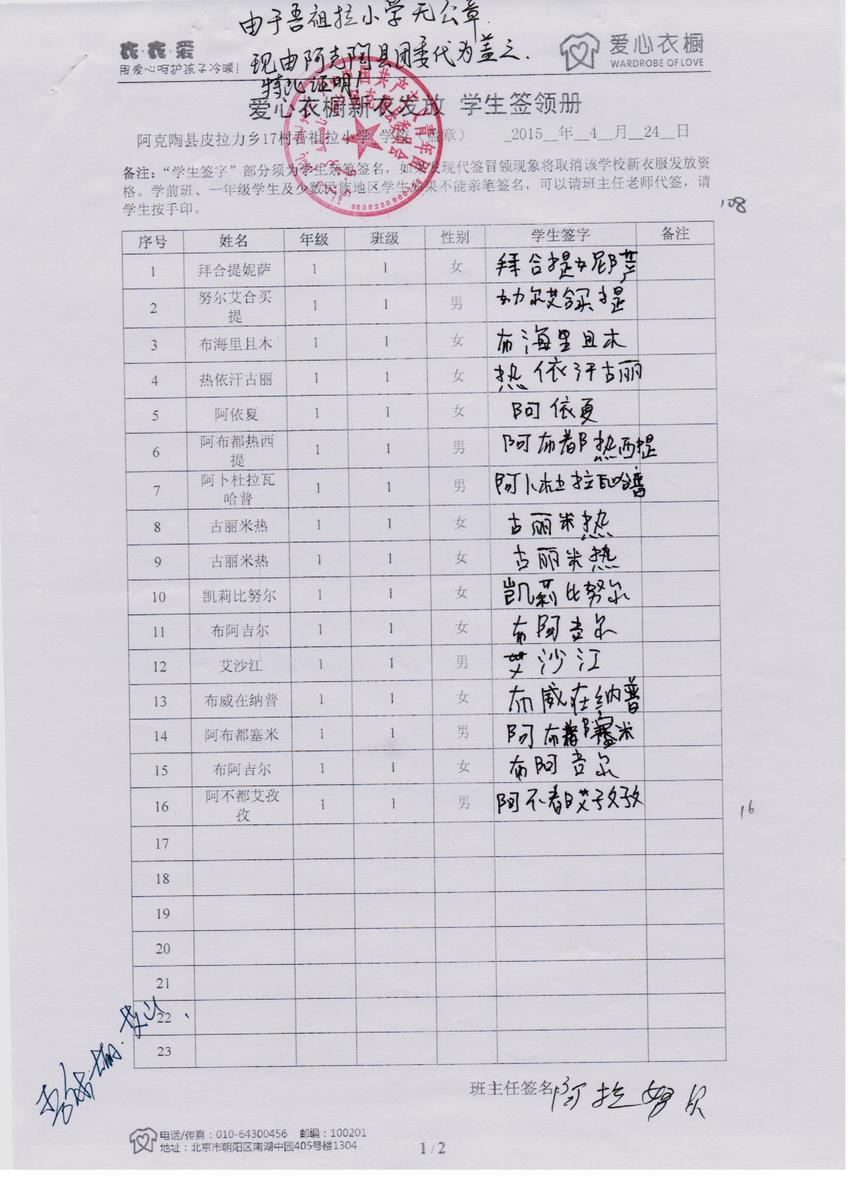 由于吾祖拉小学无公章.
现由阿克陶县团委代为盖之.
特此证明!
衣·衣·爱
用爱心呵护孩子冷暖!
爱心衣橱
WARDROBE OF LOVE
爱心衣橱新衣发放 学生签领册
阿克陶县皮拉力乡17村吾祖拉小学 学校（盖章） _2015__年__4__月__24__日
备注：“学生签字”部分须为学生亲笔签名，如果发现代签冒领现象将取消该学校新衣服发放资
格。学前班、一年级学生及少数民族地区学生如果不能亲笔签名，可以请班主任老师代签，请
学生按手印。
108
序号 姓名 年级 班级 性别 学生签字 备注
1 拜合提妮萨 1 1 女 拜合提妮萨
2 努尔艾合买提 1 1 男 努尔艾合买提
3 布海里且木 1 1 女 布海里且木
4 热依汗古丽 1 1 女 热依汗古丽
5 阿依夏 1 1 女 阿依夏
6 阿布都热西提 1 1 男 阿布都热西提
7 阿卜杜拉瓦哈普 1 1 男 阿卜杜拉瓦哈普
8 古丽米热 1 1 女 古丽米热
9 古丽米热 1 1 女 古丽米热
10 凯莉比努尔 1 1 女 凯莉比努尔
11 布阿吉尔 1 1 女 布阿吉尔
12 艾沙江 1 1 男 艾沙江
13 布威在纳普 1 1 女 布威在纳普
14 阿布都塞米 1 1 男 阿布都塞米
15 布阿吉尔 1 1 女 布阿吉尔
16 阿不都艾孜孜 1 1 男 阿不都艾孜孜
16
17
18
19
20
21
22
23
班主任签名 阿拉努尔
电话/传真：010-64300456 邮编：100201
地址：北京市朝阳区南湖中园405号楼1304
1 / 2